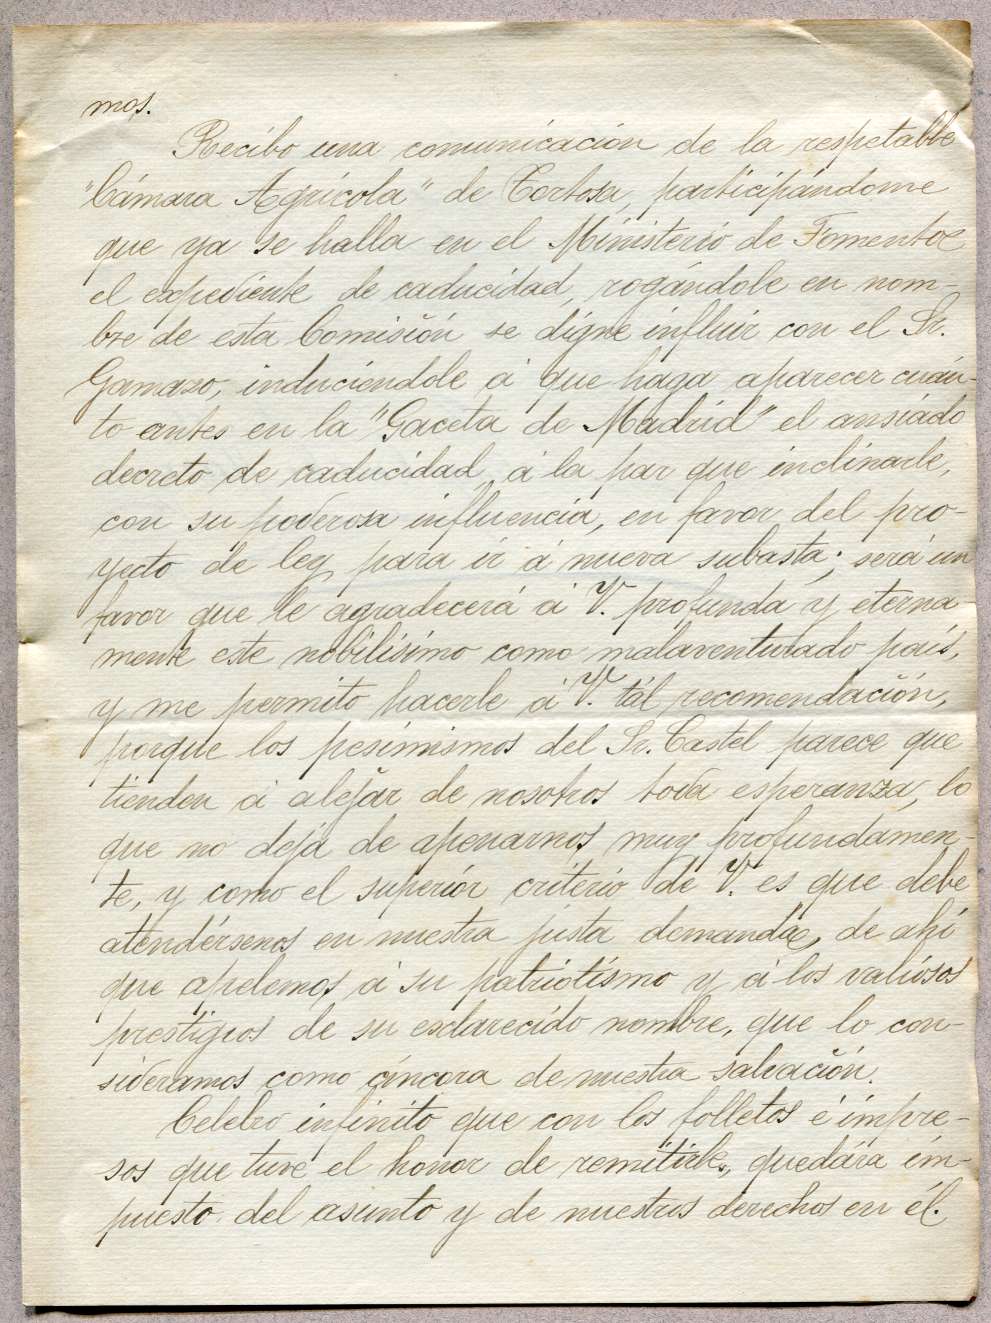 mos.
Recibo una comunicación de la respetable
"Cámara Agrícola" de Tortosa, participándome
que ya se halla en el Ministerio de Fomento
el expediente de caducidad, rogándole en nom-
bre de esta Comisión se digne influir con el Sr.
Gamazo, induciéndole á que haga aparecer cuán-
to antes en la "Gaceta de Madrid" el ansiado
decreto de caducidad, á la par que inclinarle,
con su poderosa influencia, en favor del pro-
yecto de ley para ir á nueva subasta; será un
favor que le agradecerá á V. profunda y eterna
mente este nobilísimo como malaventurado país,
y me permito hacerle á V. tál recomendación,
porque los pesimismos del Sr. Castel parece que
tienden á alejar de nosotros toda esperanza, lo
que no deja de apenarnos muy profundamen-
te, y como el superior criterio de V. es que debe
atendérsenos en nuestra justa demanda, de ahí
que apelemos á su patriotismo y á los valiosos
prestigios de su esclarecido nombre, que lo con-
sideramos como áncora de nuestra salvación.
Celebro infinito que con los folletos é impre-
sos que tuve el honor de remitirle, quedára im-
puesto del asunto y de nuestros derechos en él.